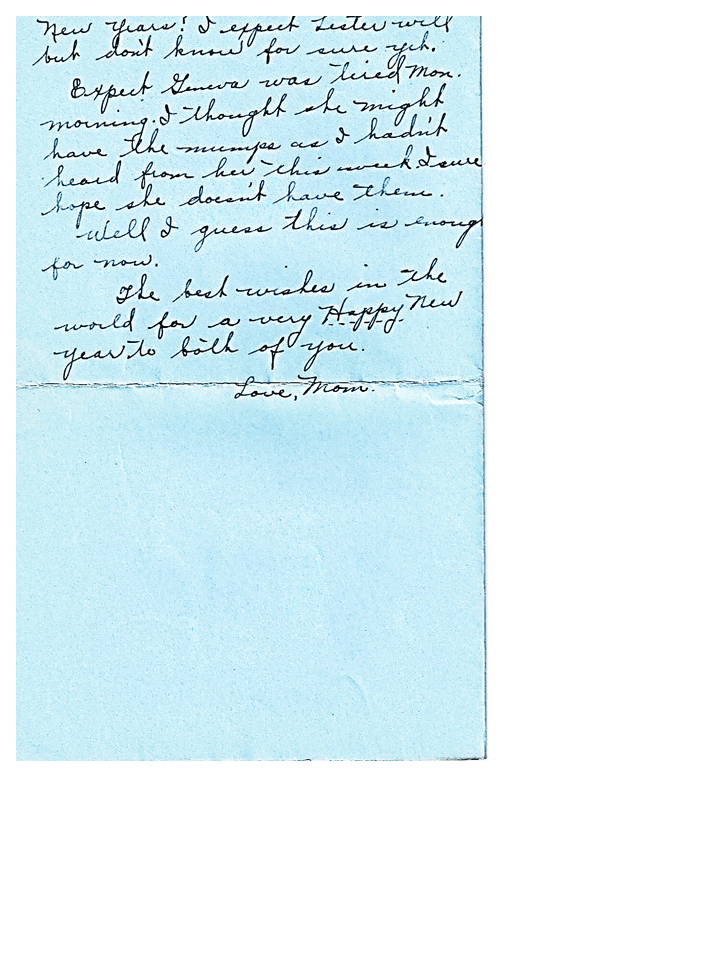 New Years? I expect Lester will
but don't know for sure yet.
Expect Geneva was tired Mon.
morning. I thought she might
have the mumps as I hadn't
heard from her this week. I sure
hope she doesn't have them.
Well I guess this is enoug
for now.
The best wishes in the
world for a very Happy New
Year to both of you.
Love, Mom.